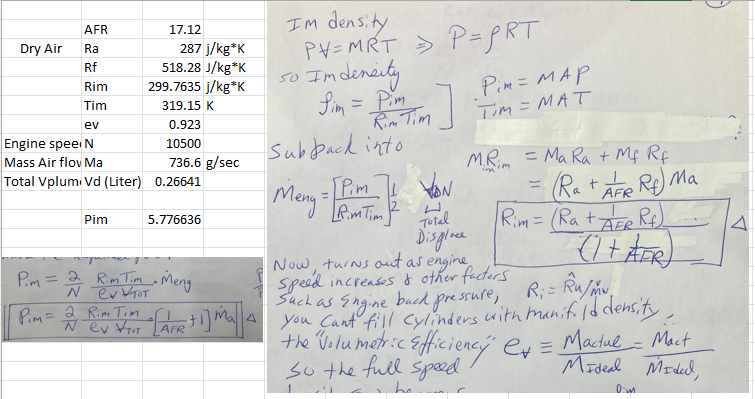 AFR 17.12
Dry Air Ra 287 j/kg*K
Rf 518.28 J/kg*K
Rim 299.7635 j/kg*K
Tim 319.15 K
ev 0.923
Engine speed N 10500
Mass Air flow Ma 736.6 g/sec
Total Vplume Vd (Liter) 0.26641
Pim 5.776636
Pim = 2/N Rim Tim / ev VTOT · ṁeng
Pim = 2/N Rim Tim / ev VTOT · [1/AFR + 1] ṁa
Im density
PV = MRT ⇒ P = ρRT
so Im density
ρim = Pim / Rim Tim
Pim = MAP
Tim = MAT
Sub back into
Ṁeng = [Pim / Rim Tim] 1/2 VDN
Total
Displace
MimRim = MaRa + MfRf
= (Ra + 1/AFR Rf) Ma
Rim = (Ra + 1/AFR Rf) / (1 + 1/AFR)
Now turns out as engine
speed increases & other factors
Such as Engine back pressure,
Ri = R̂u/m̂w
you Cant fill Cylinders with manifold density,
the "Volumetric Efficiency" ev ≡ Mactual / MIdeal = Ṁact / ṀIdeal,
so the full speed